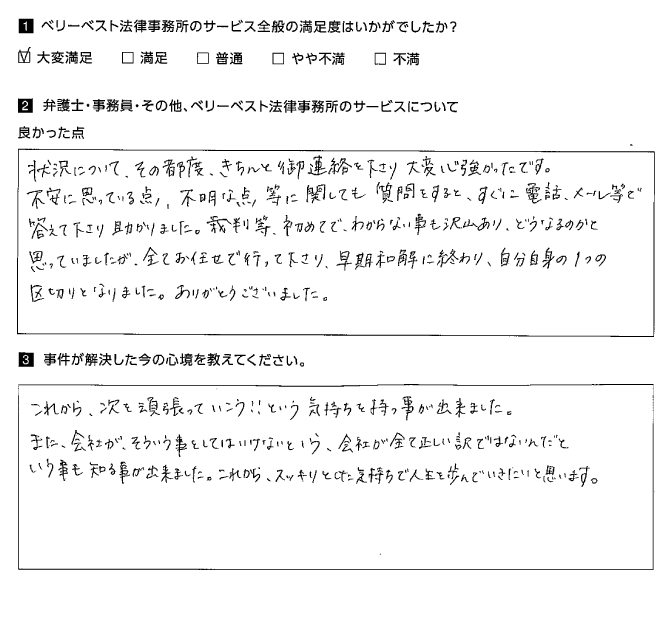 1 ベリーベスト法律事務所のサービス全般の満足度はいかがでしたか?
☑ 大変満足 □ 満足 □ 普通 □ やや不満 □ 不満
2 弁護士・事務員・その他、ベリーベスト法律事務所のサービスについて
良かった点
状況について、その都度、きちんと御連絡を下さり大変心強かったです。
不安に思っている点、不明な点、等に関しても質問をすると、すぐに電話、メール等で
答えて下さり助かりました。裁判等、初めてで、わからない事も沢山あり、どうなるのかと
思っていましたが、全てお任せで行って下さり、早期和解に終わり、自分自身の1つの
区切りとなりました。ありがとうございました。
3 事件が解決した今の心境を教えてください。
これから、次を頑張っていこう!!という気持ちを持つ事が出来ました。
また、会社が、そういう事をしてはいけないという、会社が全て正しい訳ではないんだと
いう事も知る事が出来ました。これから、スッキリとした気持ちで人生を歩んでいきたいと思います。